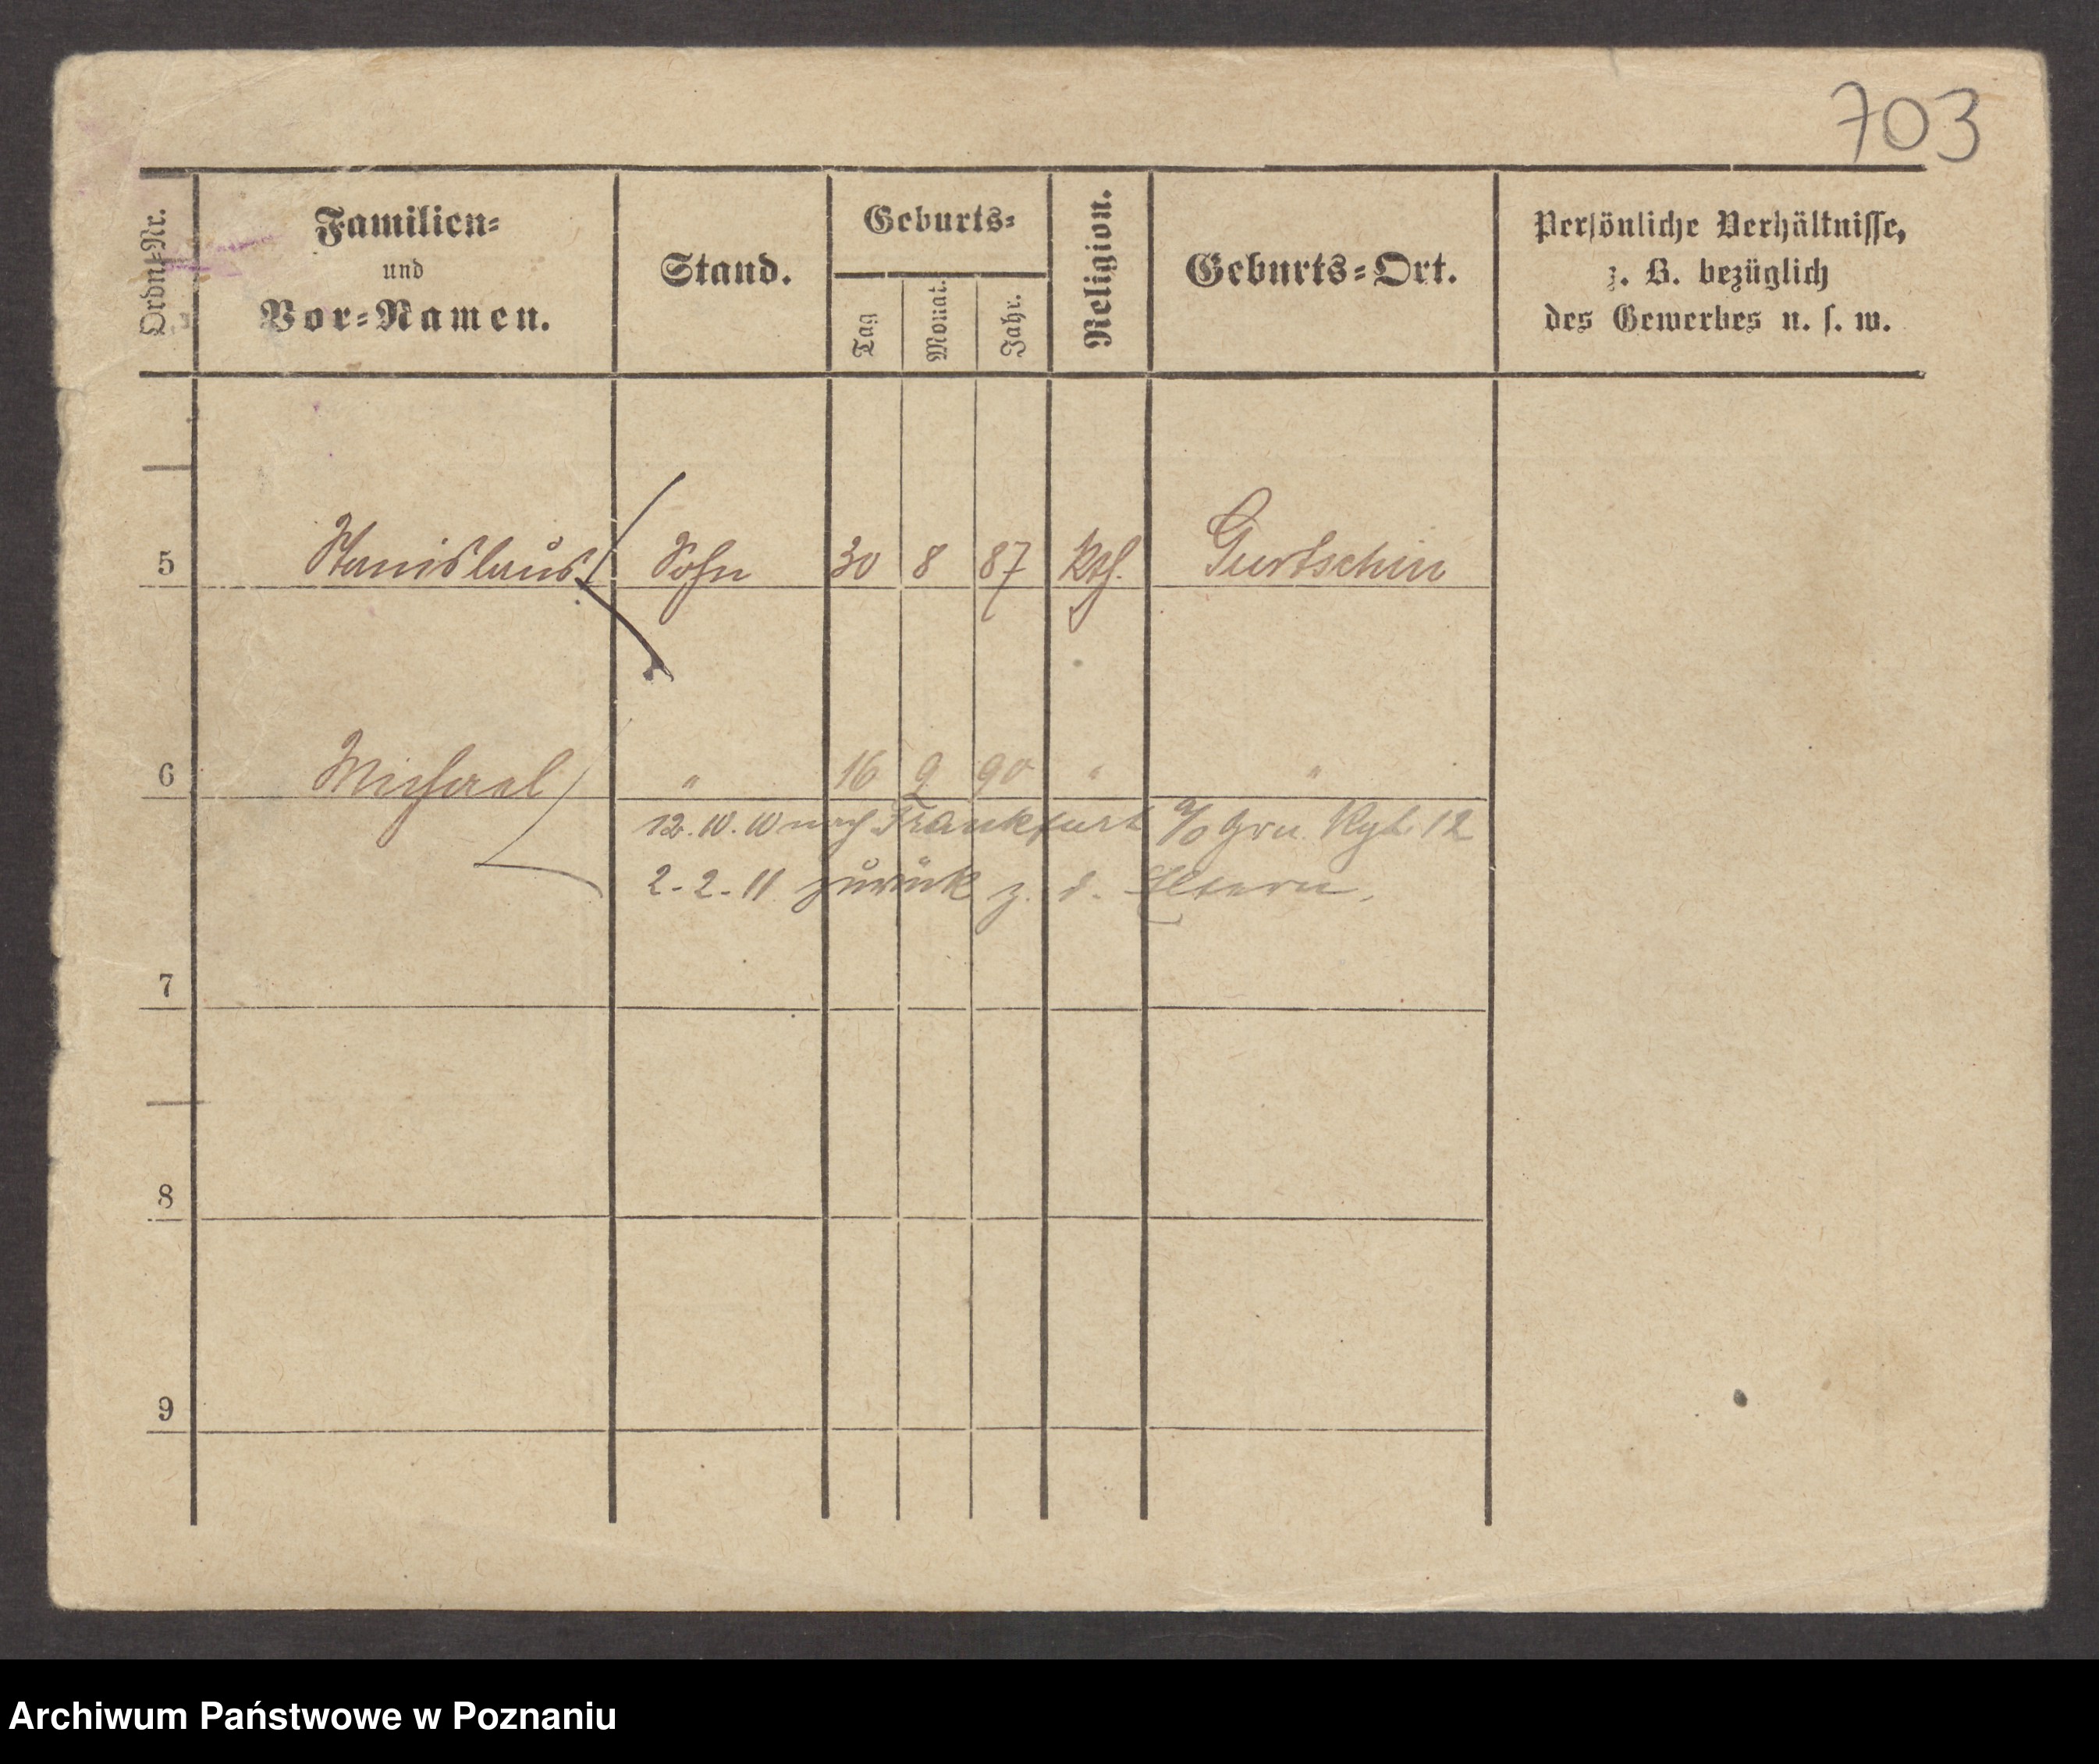 703
Ordn.-Nr.
Familien-
und
Vor-Namen.
Stand.
Geburts-
Tag
Monat.
Jahr.
Religion.
Geburts-Ort.
Persönliche Verhältnisse,
z. B. bezüglich
des Gewerbes u. s. w.
5 Stanislaus Sohn 30 8 87 kth. Gurtschin
6 Michael " 16 9 90 " "
12.10.10 nach Frankfurt a/O Gren. Rgt. 12
2-2-11 zurück z. d. Eltern.
7
8
9
Archiwum Państwowe w Poznaniu